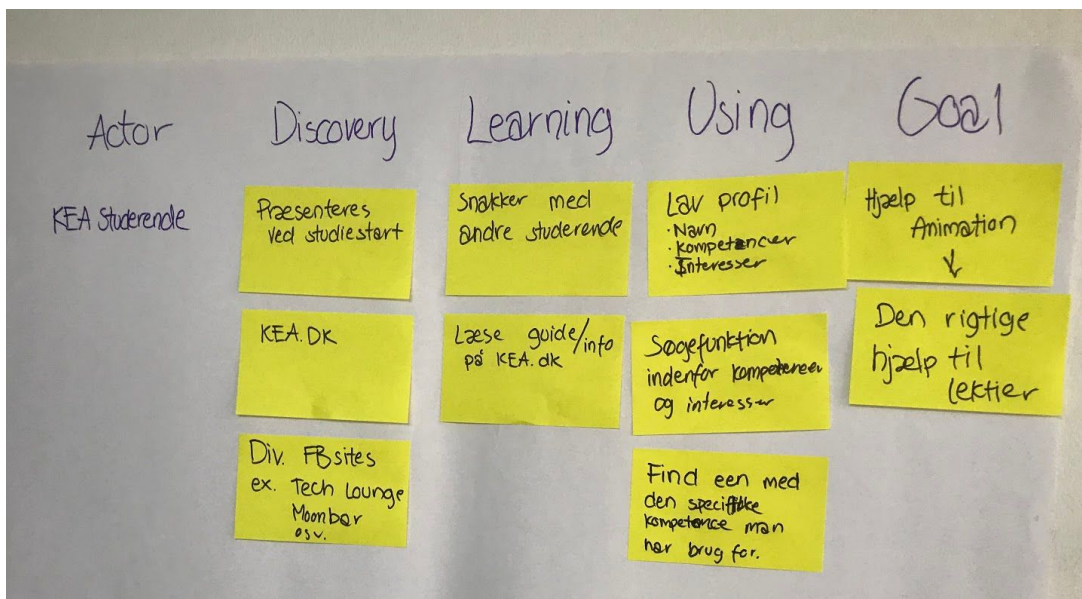 Actor
Discovery
Learning
Using
Goal
KEA Studerende
Præsenteres
ved studiestart
KEA.DK
Div. FB sites
ex. Tech Lounge
Moonbar
osv.
Snakker med
andre studerende
Læse guide/info
på KEA.dk
Lav profil
·Navn
·Kompetencer
·Interesser
Søgefunktion
indenfor kompetencer
og interesser
Find een med
den specifikke
kompetence man
har brug for.
Hjælp til
Animation
↓
Den rigtige
hjælp til
lektier